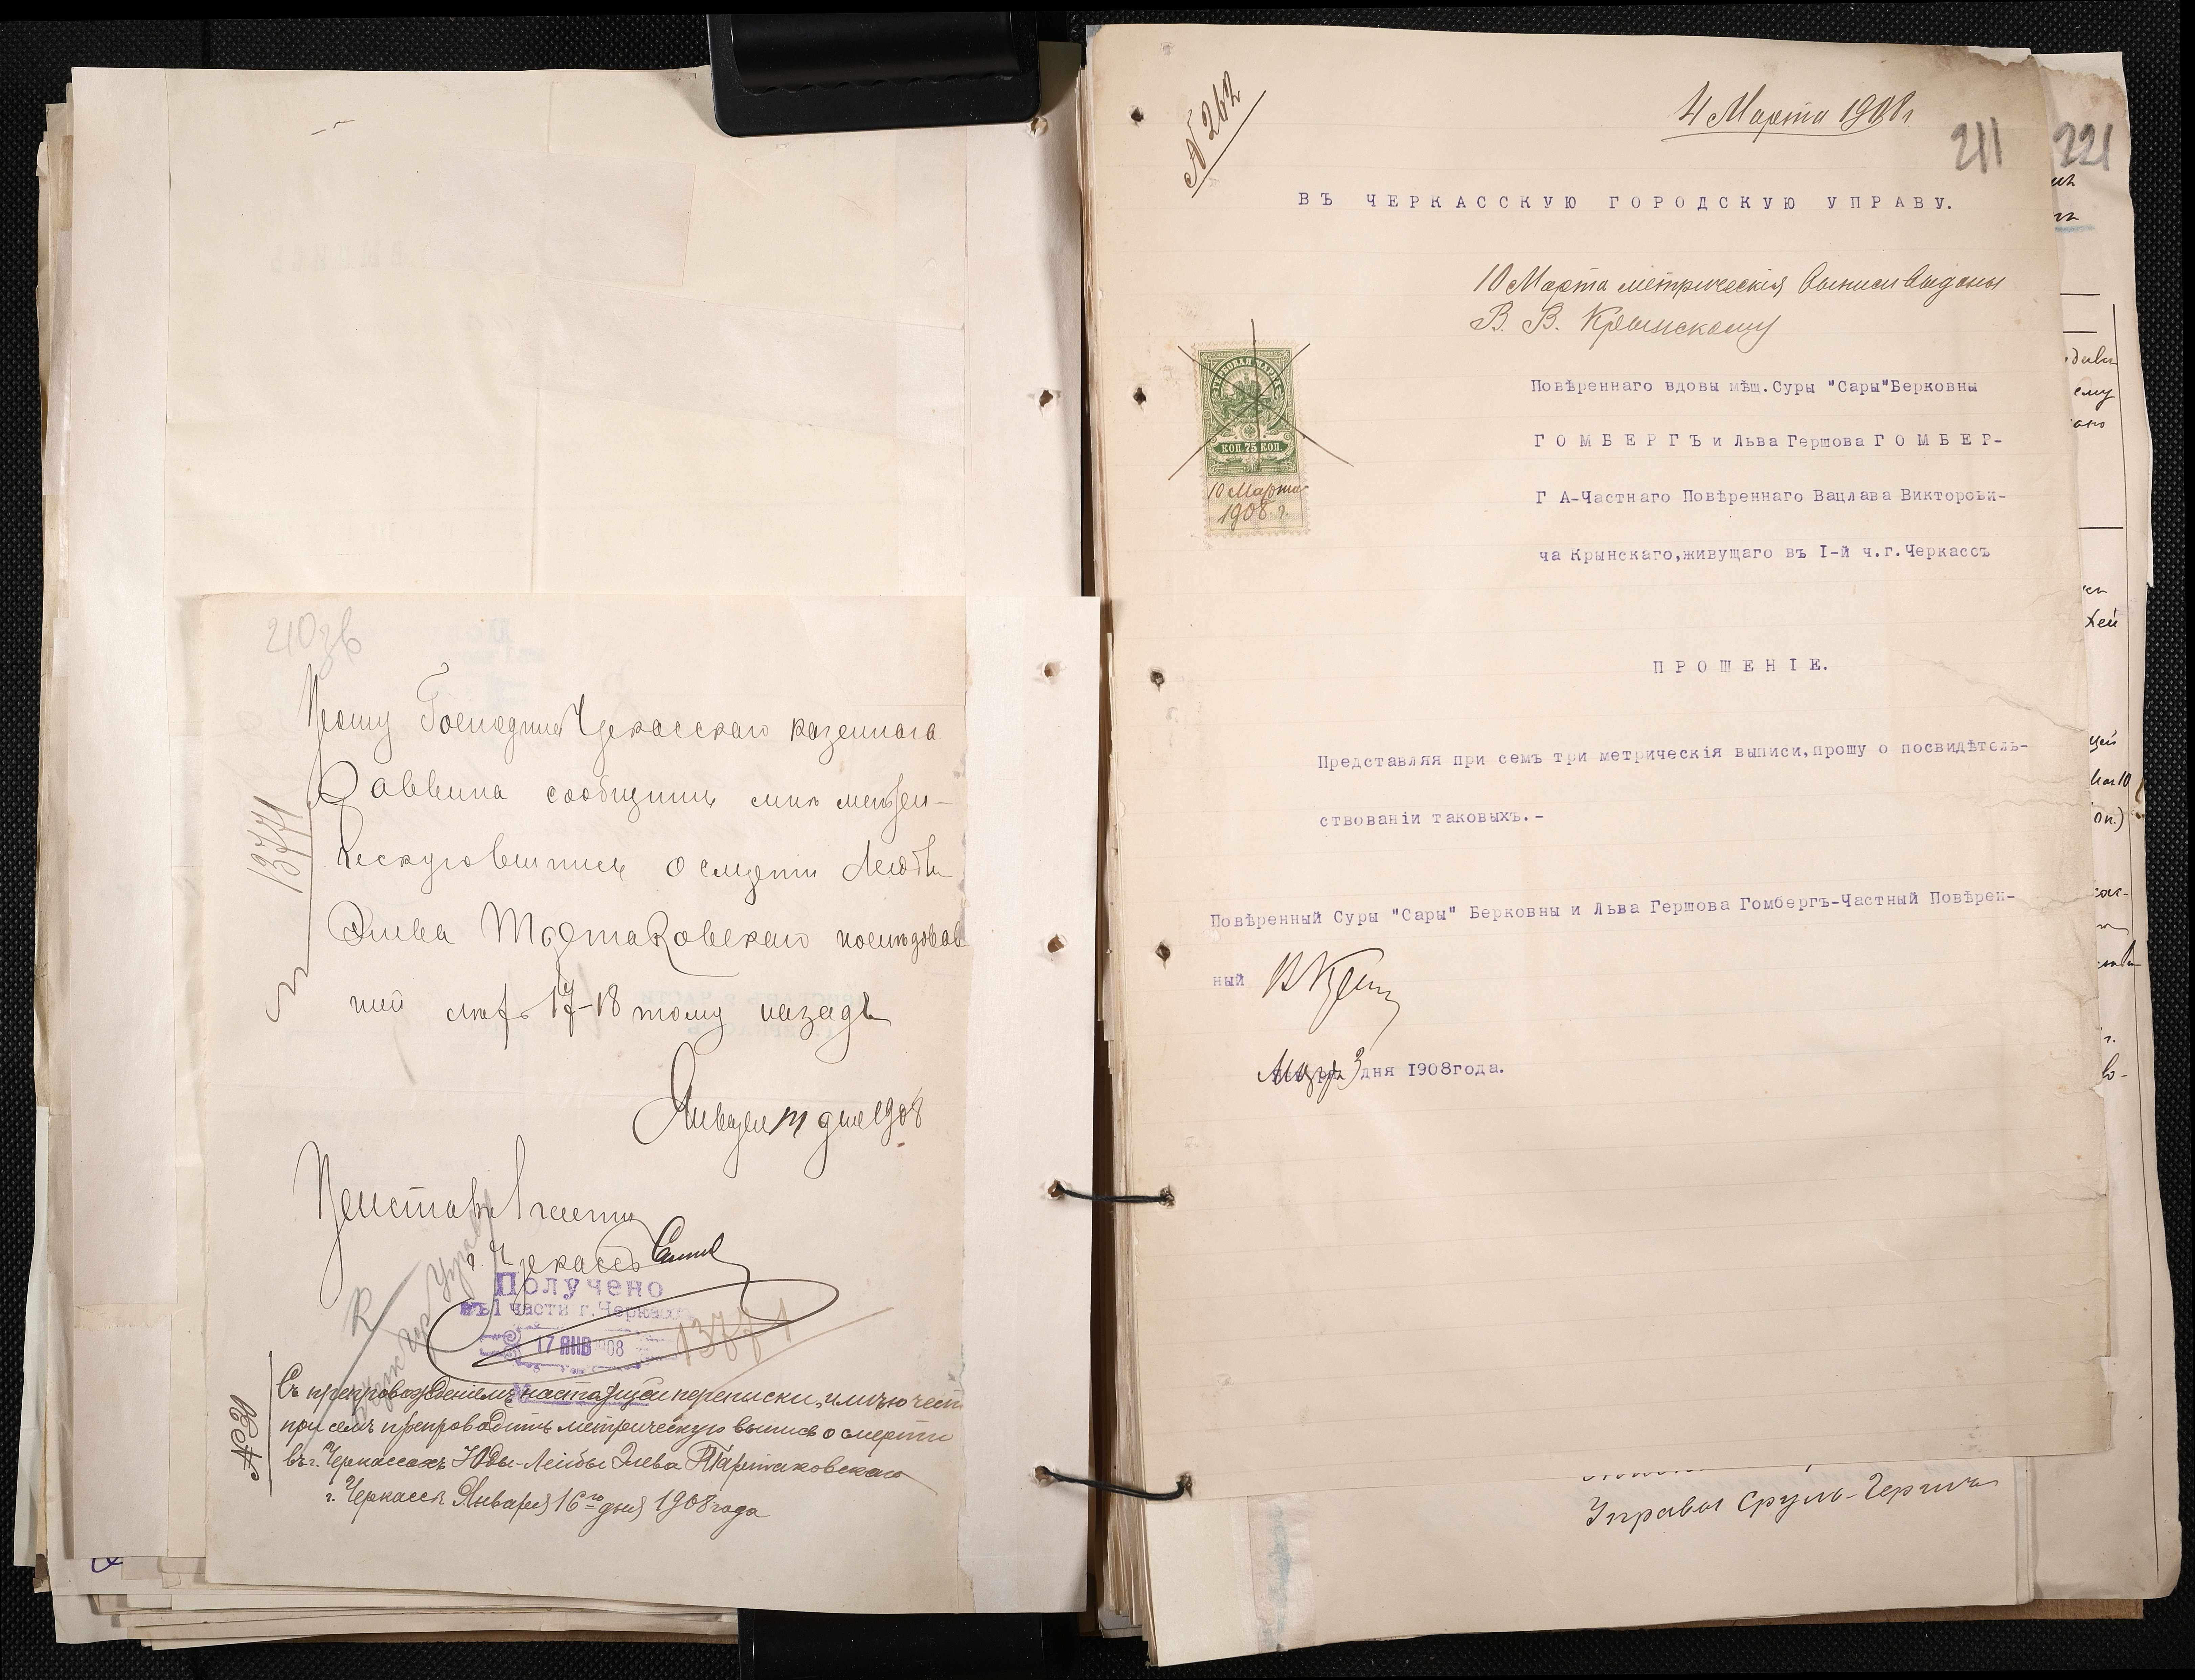 210 зв
Прошу Господина Черкасскаго казеннаго
Раввина сообщить мнѣ метри-
ческую выпись о смерти Лейбы
Элева Тартаковскаго последовав
шей лѣтъ 17-18 тому назадъ
Января 11 дня 1908
13771
Приставъ 1 части
г. Черкассъ
Получено
въ 1 части г. Черкассъ
17 ЯНВ 1908
13771
№ 30
Съ препровожденіемъ настоящей переписки, имѣю чест
при семъ препроводить метрическую выпись о смерти
въ г. Черкассахъ Юды-Лейбы Элева Тартаковскаго
г. Черкассы Января 16го дня 1908 года
№ 262
4 Марта 1908 г
211
221
ВЪ ЧЕРКАССКУЮ ГОРОДСКУЮ УПРАВУ.
10 Марта метрическія выписи выданы
В. В. Крынскому
ГЕРБОВАЯ МАРКА
КОП. 75 КОП.
10 Марта
1908 г.
Повѣреннаго вдовы мѣщ. Суры "Сары" Берковны
ГОМБЕРГЪ и Льва Гершова ГОМБЕГ-
Г А-Частнаго Повѣреннаго Вацлава Викторови-
ча Крынскаго, живущаго въ I-й ч. г. Черкассъ
ПРОШЕНІЕ.
Представляя при семъ три метрическія выписи, прошу о посвидѣтель-
ствованіи таковыхъ.-
Повѣренный Суры "Сары" Берковны и Льва Гершова Гомбергъ-Частный Повѣрен-
ный В Крын
Марта 3 дня 1908 года.
Управы Сруль-Герша